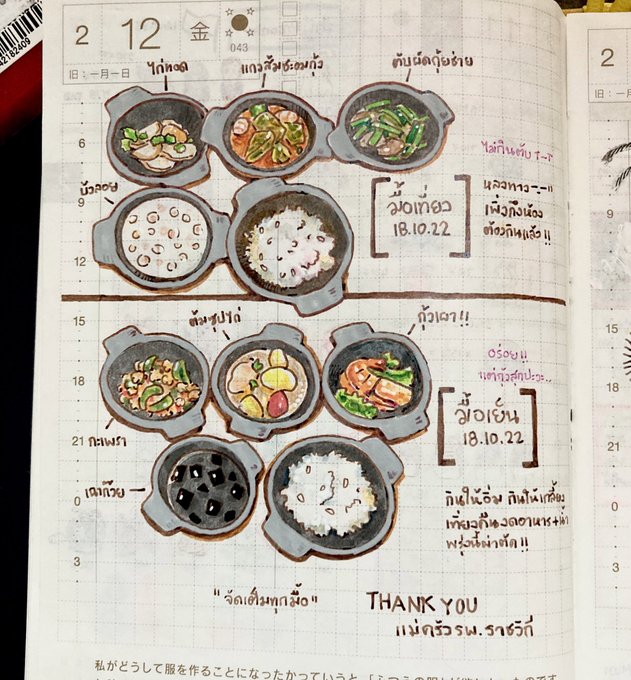 42182409
2 12 金
043
旧：一月一日
2
ไก่ทอด
แกงส้มชะอมกุ้ง
ตับผัดกุ้ยช่าย
6
9
12
15
18
21
0
3
ไม่กินตับ T-T
บัวลอย
มื้อเที่ยง
18.10.22
หลงทาง -_-"
เพิ่งถึงห้อง
ต้องกินแล้ว!!
ต้มซุปไก่
กุ้งเผา!!
อร่อย!!
มื้อเย็น
18.10.22
กะเพรา
เฉาก๊วย
กินให้อิ่ม กินให้เกลี้ยง
เที่ยงคืนงดอาหาร+น้ำ
พรุ่งนี้ผ่าตัด!!
"จัดเต็มทุกมื้อ"
THANK YOU
แม่ครัวรพ.ราชวิถี
9
12
15
18
21
0
3
私がどうして服を作ることになったかっていうと、「ふつうの服」が